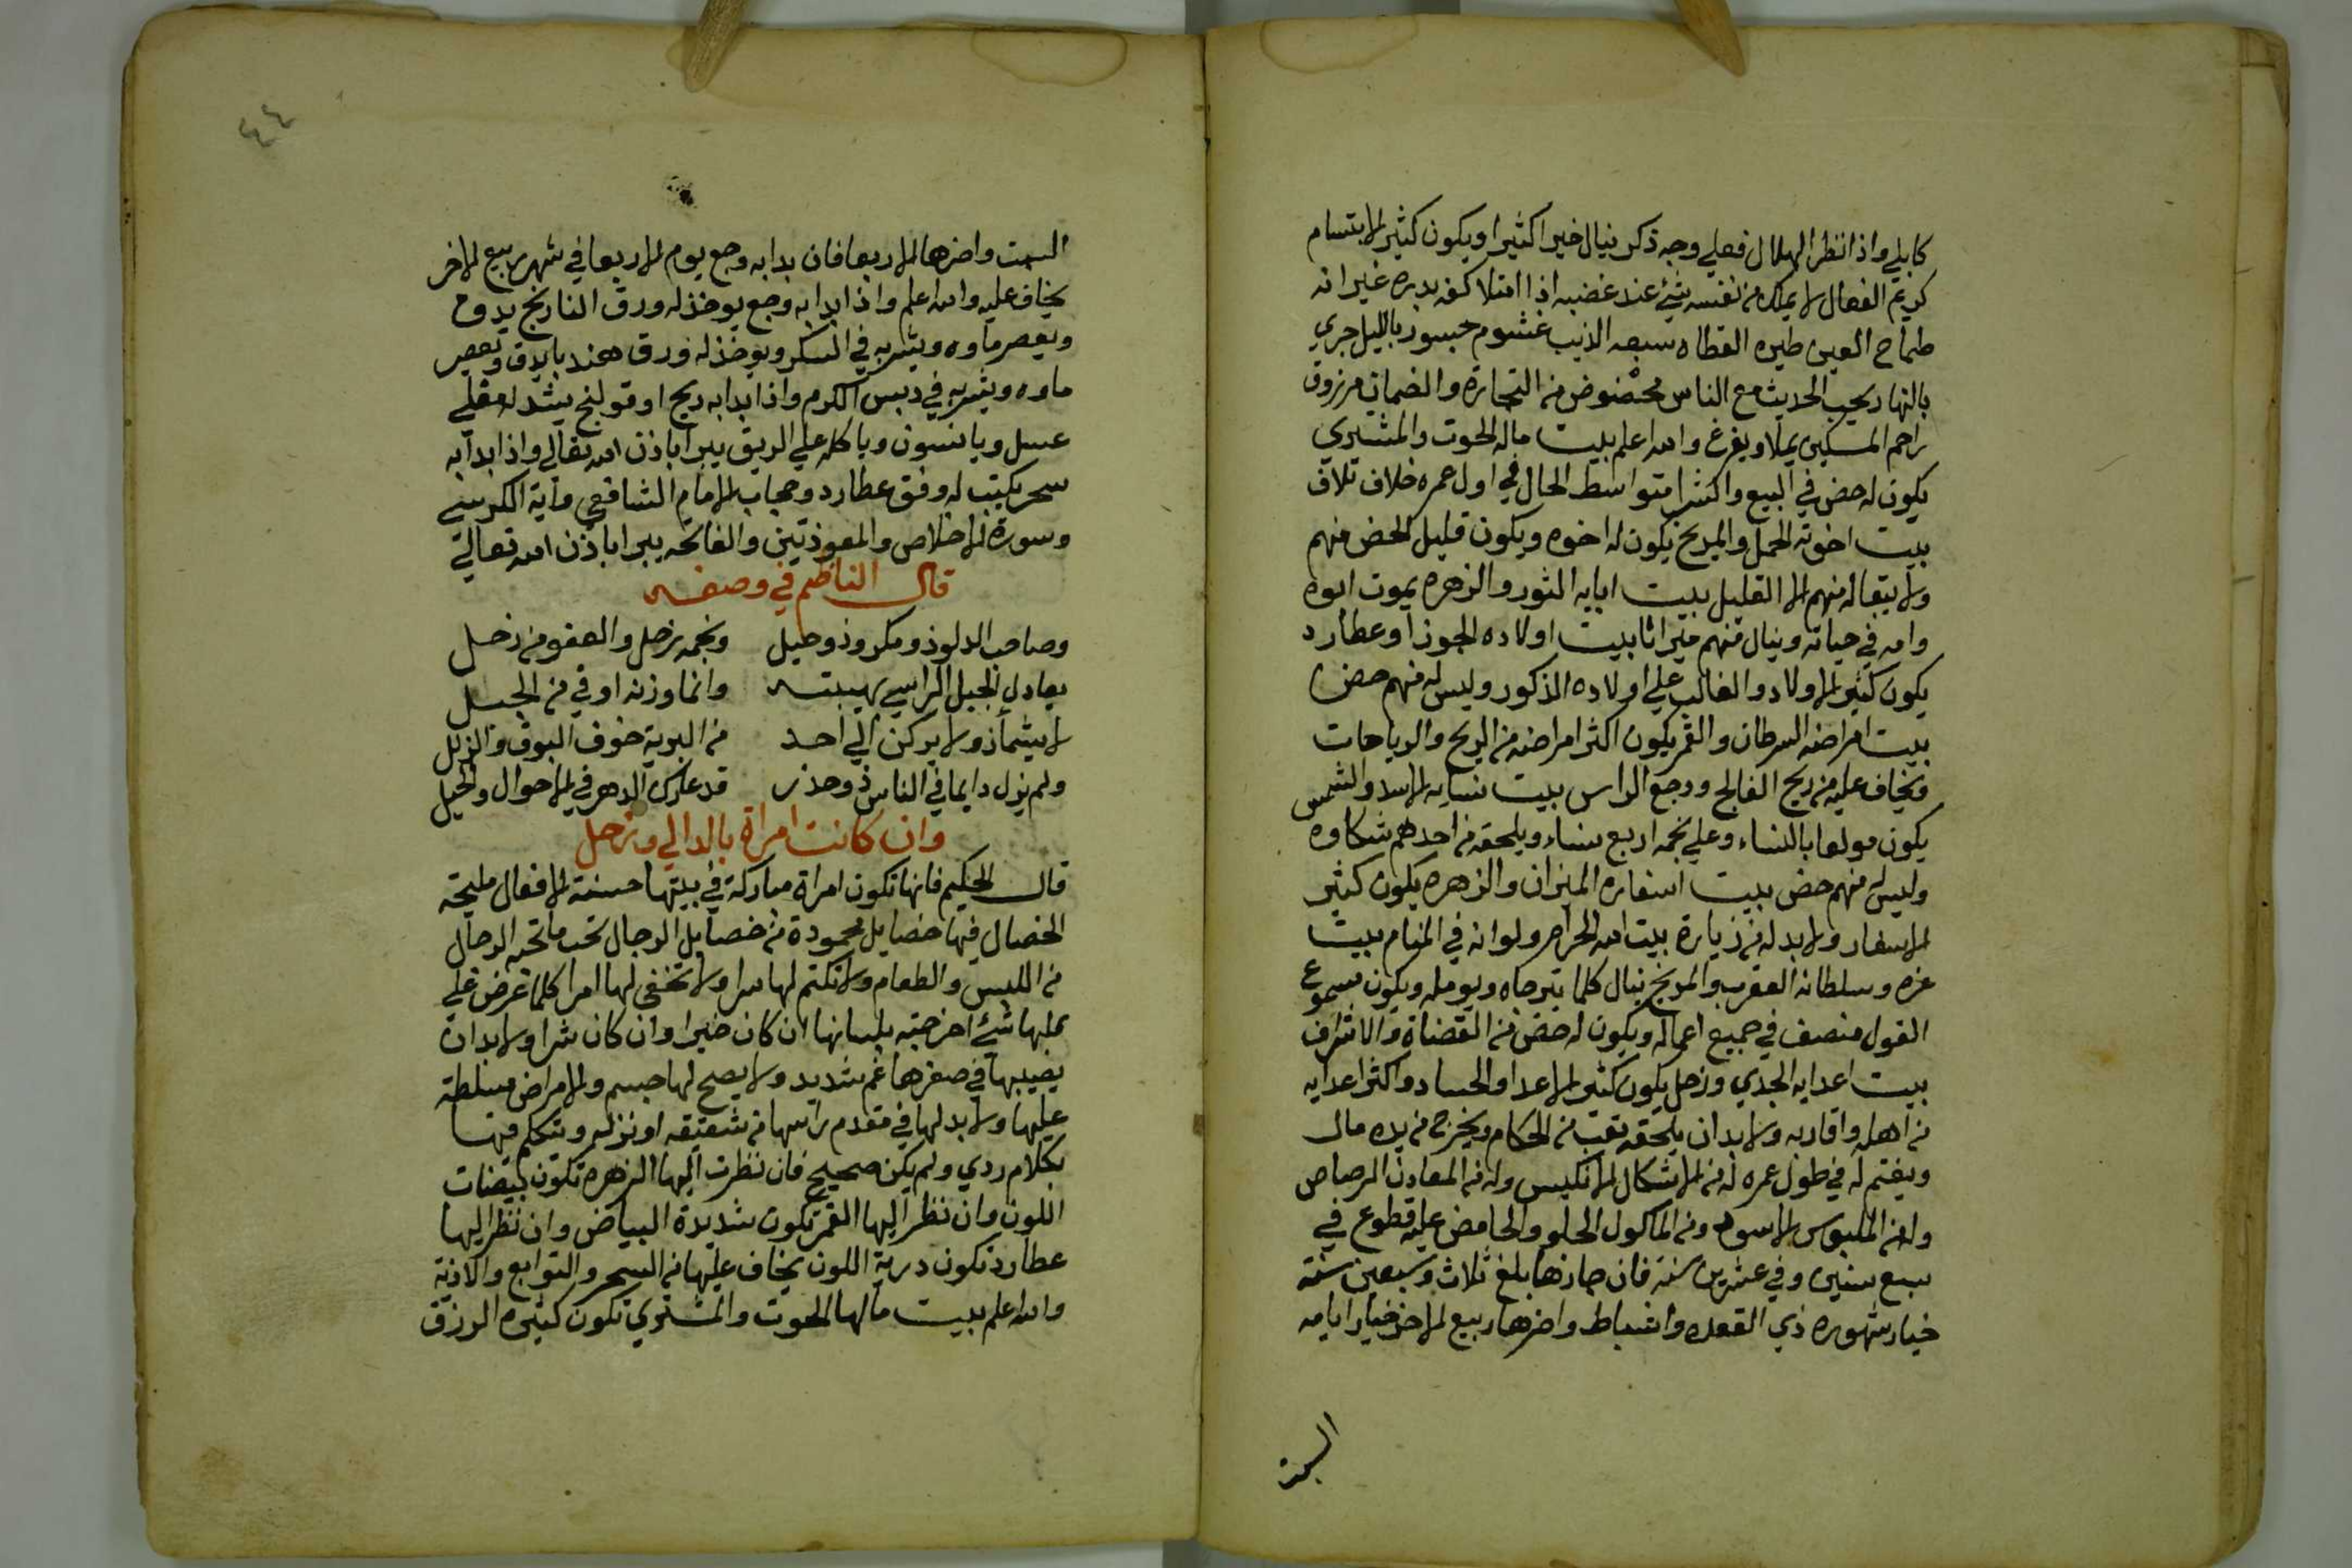 كابلي واذا نظر الهلال فعلي وجه ذكر ينال خيرا كثيرا ويكون كثير الابتسام
كريم الفعال لا يملك من نفسه شيء عند غضبه اذا امتلا كفه بدره غير انه
طماح العين طيره القطاه سبعه الذيب غشوم جسور بالليل جري
بالنهار يحب الحديث مع الناس من التجارة والضمان مرزوق
راحم المسكين يملا ويفرغ والله اعلم بيت ماله الحوت والمشتري
يكون له حض في البيع والشرا متواسط الحال في اول عمره خلاف تلاف
بيت اخوته الحمل والمريخ يكون له اخوه ويكون قليل الحض منهم
ولا يبقا له منهم الا القليل بيت ابايه الثور والزهره يموت ابوه
وامه في حياته وينال منهم ميراثا بيت اولاده الجوزا وعطارد
يكون كثير الاولاد والغالب علي اولاده الذكور وليس له منهم حض
بيت امراضه السرطان والقمر يكون اكثر امراضه من الريح والرياحات
ويخاف عليه من ريح الفالج ووجع الراس بيت نسايه الاسد والشمس
يكون مولعا بالنساء وعلي نجمه اربع نساء ويلحقه من احدهم شكاوه
وليس له منهم حض بيت اسفاره الميزان والزهره يكون كثير
الاسفار ولا بد له من زيارة بيت الله الحرام ولو انه في المنام بيت
عزه وسلطانه العقرب والمريخ ينال كلما يترجاه ويومله ويكون مسموع
القول منصف في جميع اعماله ويكون له حض من القضاة والاشراف
بيت اعدايه الجدي وزحل يكون كثير الاعدا والحساد واكثر اعدايه
من اهله واقاربه ولا بد ان يلحقه تعب من الحكام ويخرج من يده مال
ويغتم له في طول عمره له من الاشكال الانكيس وله من المعادن الرصاص
وله من الملبوس الاسود ومن الماكول الحلو والحامض عليه قطوع في
سبع سنين وفي عشرين سنه فان جازها بلغ ثلاث وسبعين سنة
خيار شهوره ذي القعده واشباط واضرها ربيع الاخر خيار ايامه
السبت
٤٤
السبت واضرها الاربعا فان بدا به وجع يوم الاربعا في شهر ربيع الاخر
يخاف عليه والله اعلم واذا بدا به وجع يوخذ له ورق النارنج يدق
ويعصر ماوه ويشربه في السكر ويوخذ له ورق هندبا يدق ويعصر
ماوه ويشربه في دبس الكرم واذا بدا به ريح او قولنج يشد له مغلي
عسل ويانسون وياكله علي الريق يبرا باذن الله تعالي واذا بدا به
سحر يكتب له وفق عطارد وحجاب الامام الشافعي واية الكرسي
وسورة الاخلاص والمعوذتين والفاتحه يبرا باذن الله تعالي
قال الناظم في وصفه
وصاحب الدلو ذو مكر وذو حيل ونجمه زحل والعفو من زحل
يعادل الجبل الراسي بهيبته وانما وزنه اوفي من الجبل
لا يشمأز ولا يركن الي احد من البرية خوف البوق والزلل
ولم يزل دايما في الناس ذو حذر قد عارك الدهر في الاحوال والحيل
وان كانت امراة بالدالي وزحل
قال الحكيم فانها تكون امراة مباركة في بيتها حسنة الافعال مليحة
الخصال فيها خصايل محمودة من خصايل الرجال تحب ما تحبه الرجال
من اللبس والطعام ولا تكتم لها سرا ولا تخفي لها امرا كلما عرض علي
قلبها شيء اخرجته بلسانها ان كان خيرا وان كان شرا ولا بد ان
يصيبها في صغرها غم شديد ولا يصح لها جسم والامراض مسلطة
عليها ولا بد لها في مقدم راسها من شقيقه او نزله ويتكلم فيها
بكلام ردي ولم يكن صحيح فان نظرت اليها الزهره تكون بيضات
اللون وان نظر اليها القمر تكون شديدة البياض وان نظر اليها
عطارد تكون درية اللون يخاف عليها من السحر والتوابع والاذية
والله اعلم بيت مالها الحوت والمشتري تكون كثيره الرزق